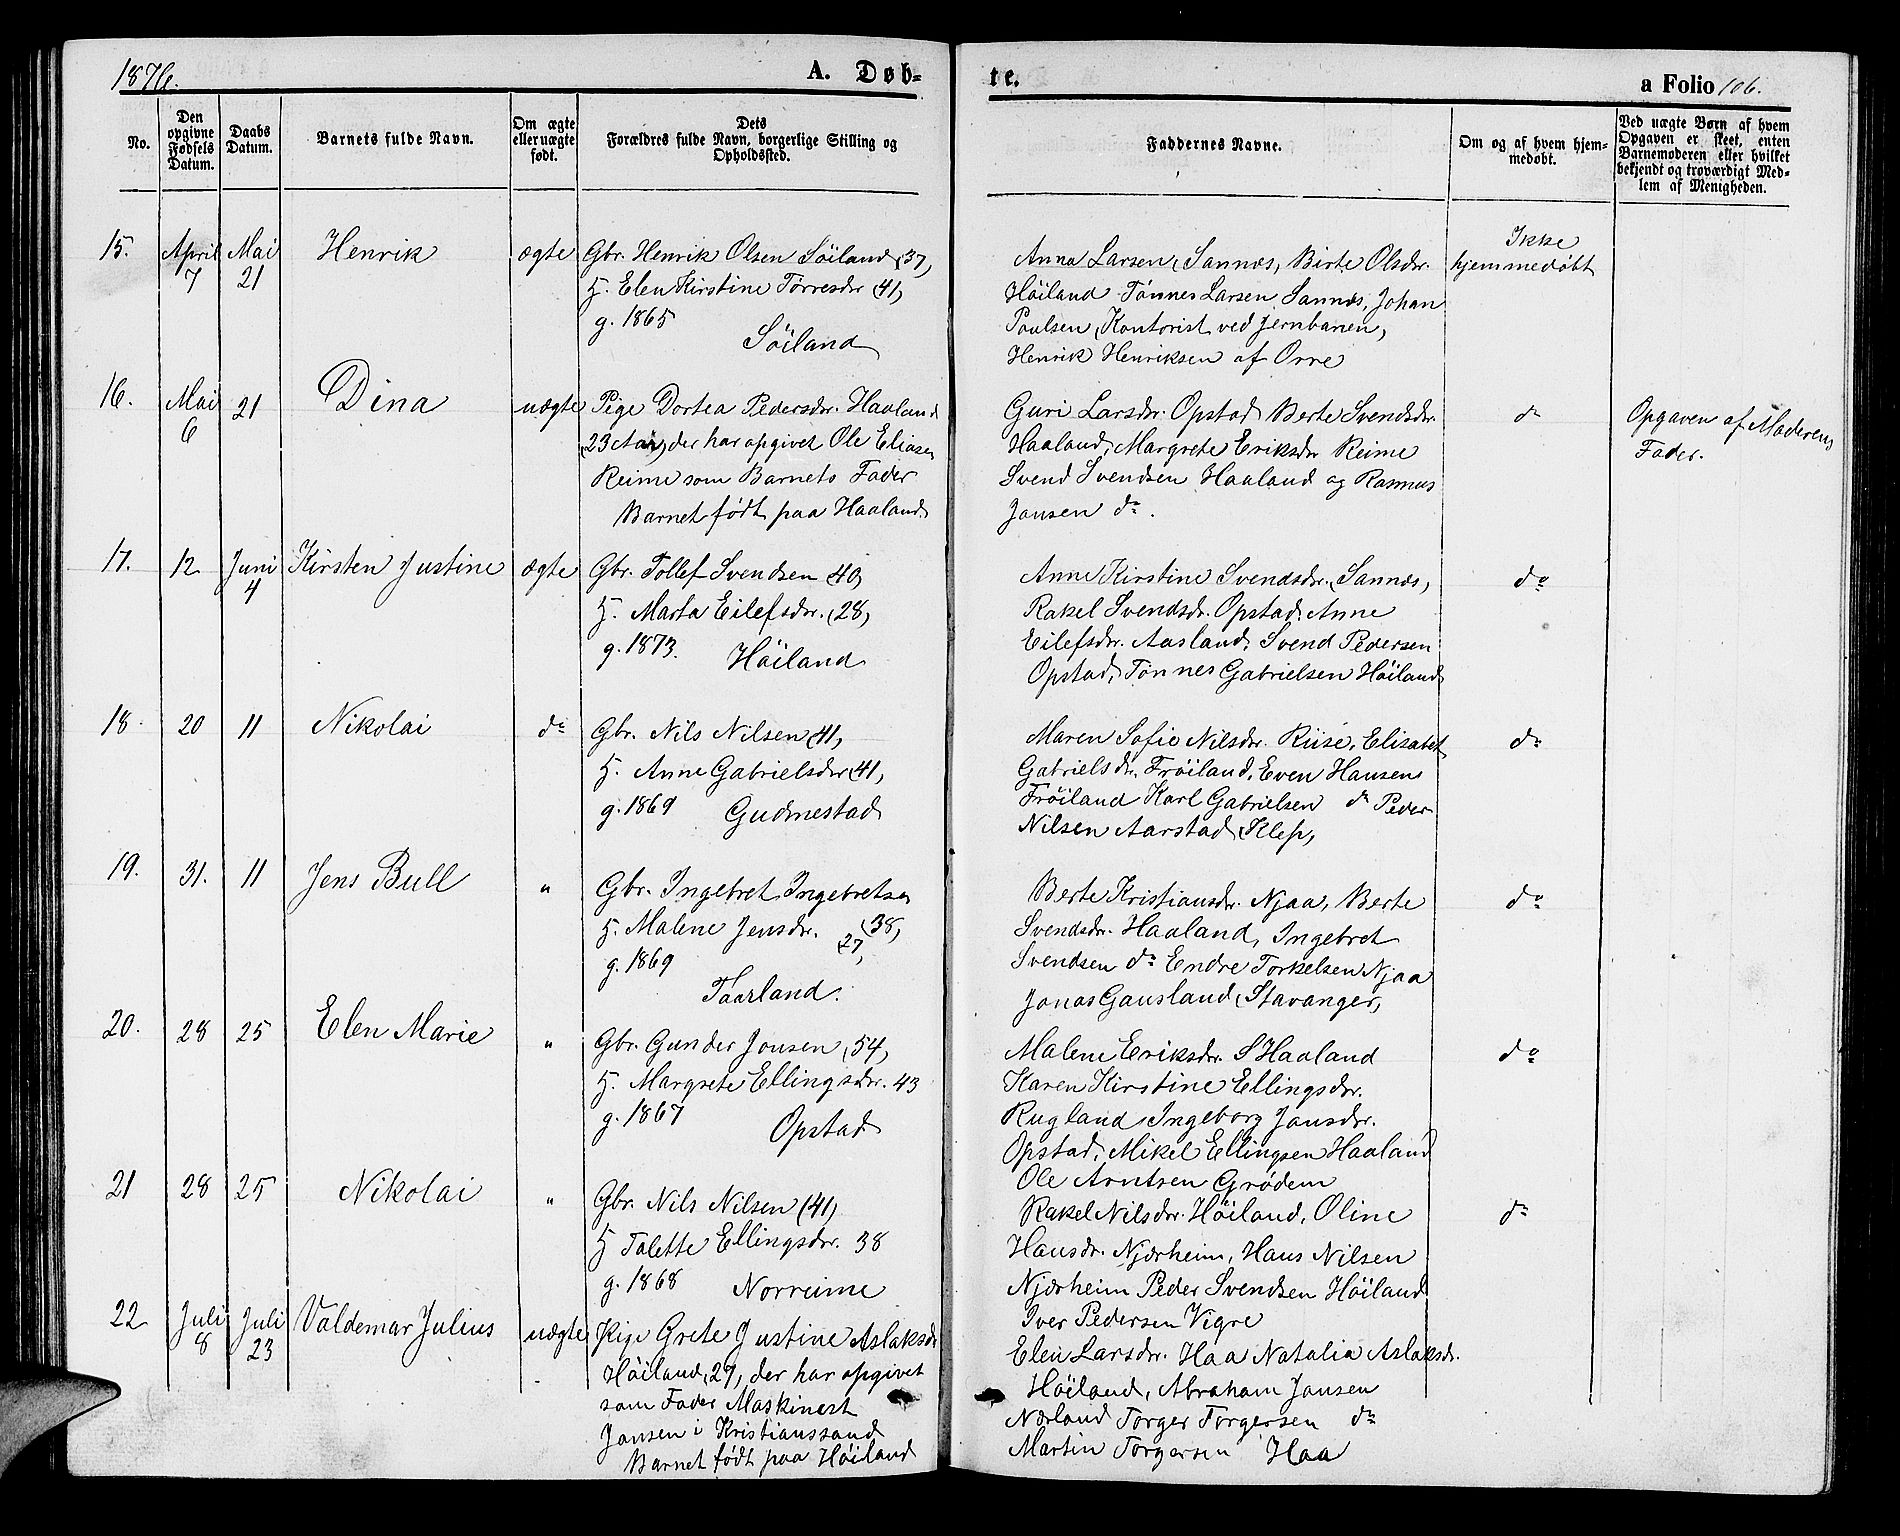 1876.
A. Døb=
te.
a Folio 106.
No.
Den opgivne Fødsels Datum.
Daabs Datum.
Barnets fulde Navn.
Om ægte eller uægte født.
Dets Forældres fulde Navn, borgerlige Stilling og Opholdssted.
Faddernes Navne.
Om og af hvem hjem-
medøbt.
Ved uægte Børn af hvem
Opgaven er skeet, enten
Barnemoderen eller hvilket
bekjendt og troværdigt Med-
lem af Menigheden.
15. April 7 Mai 21 Henrik ægte
Gbr. Henrik Olsen Söiland (37)
H. Elen Kirstine Törresdr (41)
g. 1865
Söiland
Anna Larsen, (Sannæs), Birte Olsdr.
Höiland Tönnes Larsen Sannæs, Johan
Poulsen (Kontorist ved Jernbanen)
Henrik Henriksen af Orre
Ikke
hjemmedöbt
16. Mai 6 21 Dina uægte
Pige Dortea Pedersdr. Haaland
(23 Aar) der har opgivet Ole Eliasen
Reime som Barnets Fader
Barnet födt paa Haaland
Guri Larsdr. Opstad Berte Svendsdr.
Haaland, Margrete Eriksdr Reime
Svend Svendsen Haaland og Rasmus
Jonsen do.
do
Opgaven af Moderens
Fader.
17. 12 Juni 4 Kirsten Justine ægte
Gbr. Tollef Svendsen (40)
H. Marta Eilefsdr. (28)
g. 1873.
Höiland
Anne Kirstine Svendsdr. (Sannæs)
Rakel Svendsdr. Opstad. Anne
Eilefsdr. Aasland, Svend Pedersen
Opstad, Tönnes Gabrielsen Höiland
do
18. 20 11 Nikolai do
Gbr. Nils Nilsen (41)
H. Anne Gabrielsdr (41)
g. 1869
Gudmestad
Maren Sofie Nilsdr. Riise, Elisabet
Gabrielsdr. Fröiland, Even Hansen
Fröiland Karl Gabrielsen do Peder
Nilsen Aarstad (Klep)
do
19. 31. 11 Jens Bull "
Gbr. Ingebret Ingebretsen
H. Malene Jensdr. (38)
27)
g. 1869
Taarland.
Berte Kristiansdr. Njaa, Berte
Svendsdr. Haaland, Ingebret
Svendsen do Endre Torkelsen Njaa
Jonas Gausland (Stavanger)
do
20. 28 25 Elen Marie "
Gbr. Gunder Jonsen (54)
H. Margrete Ellingsdr. 43
g. 1867
Opstad
Malene Eriksdr. S Haaland
Karen Kirstine Ellingsdr.
Rugland Ingeborg Jonsdr.
Opstad, Mikel Ellingsen Haaland
Ole Arntsen Grödem
do
21 28 25 Nikolai "
Gbr. Nils Nilsen (41)
H Talette Ellingsdr. 38
g. 1868
Norreime
Rakel Nilsdr. Höiland, Oline
Hansdr. Njærheim, Hans Nilsen
Njærheim Peder Svendsen Höiland
Iver Pedersen Vigre
do
22 Juli 8 Juli 23 Valdemar Julius uægte
Pige Grete Justine Aslaksdr
Höiland (27) der har opgivet
som Fader Maskinest
Jansen i Kristianssand
Barnet födt paa Höiland
Elen Larsdr. Haa Natalia Aslaksdr.
Höiland, Abraham Jonsen
Nærland Torger Torgersen do
Martin Torgersen Haa